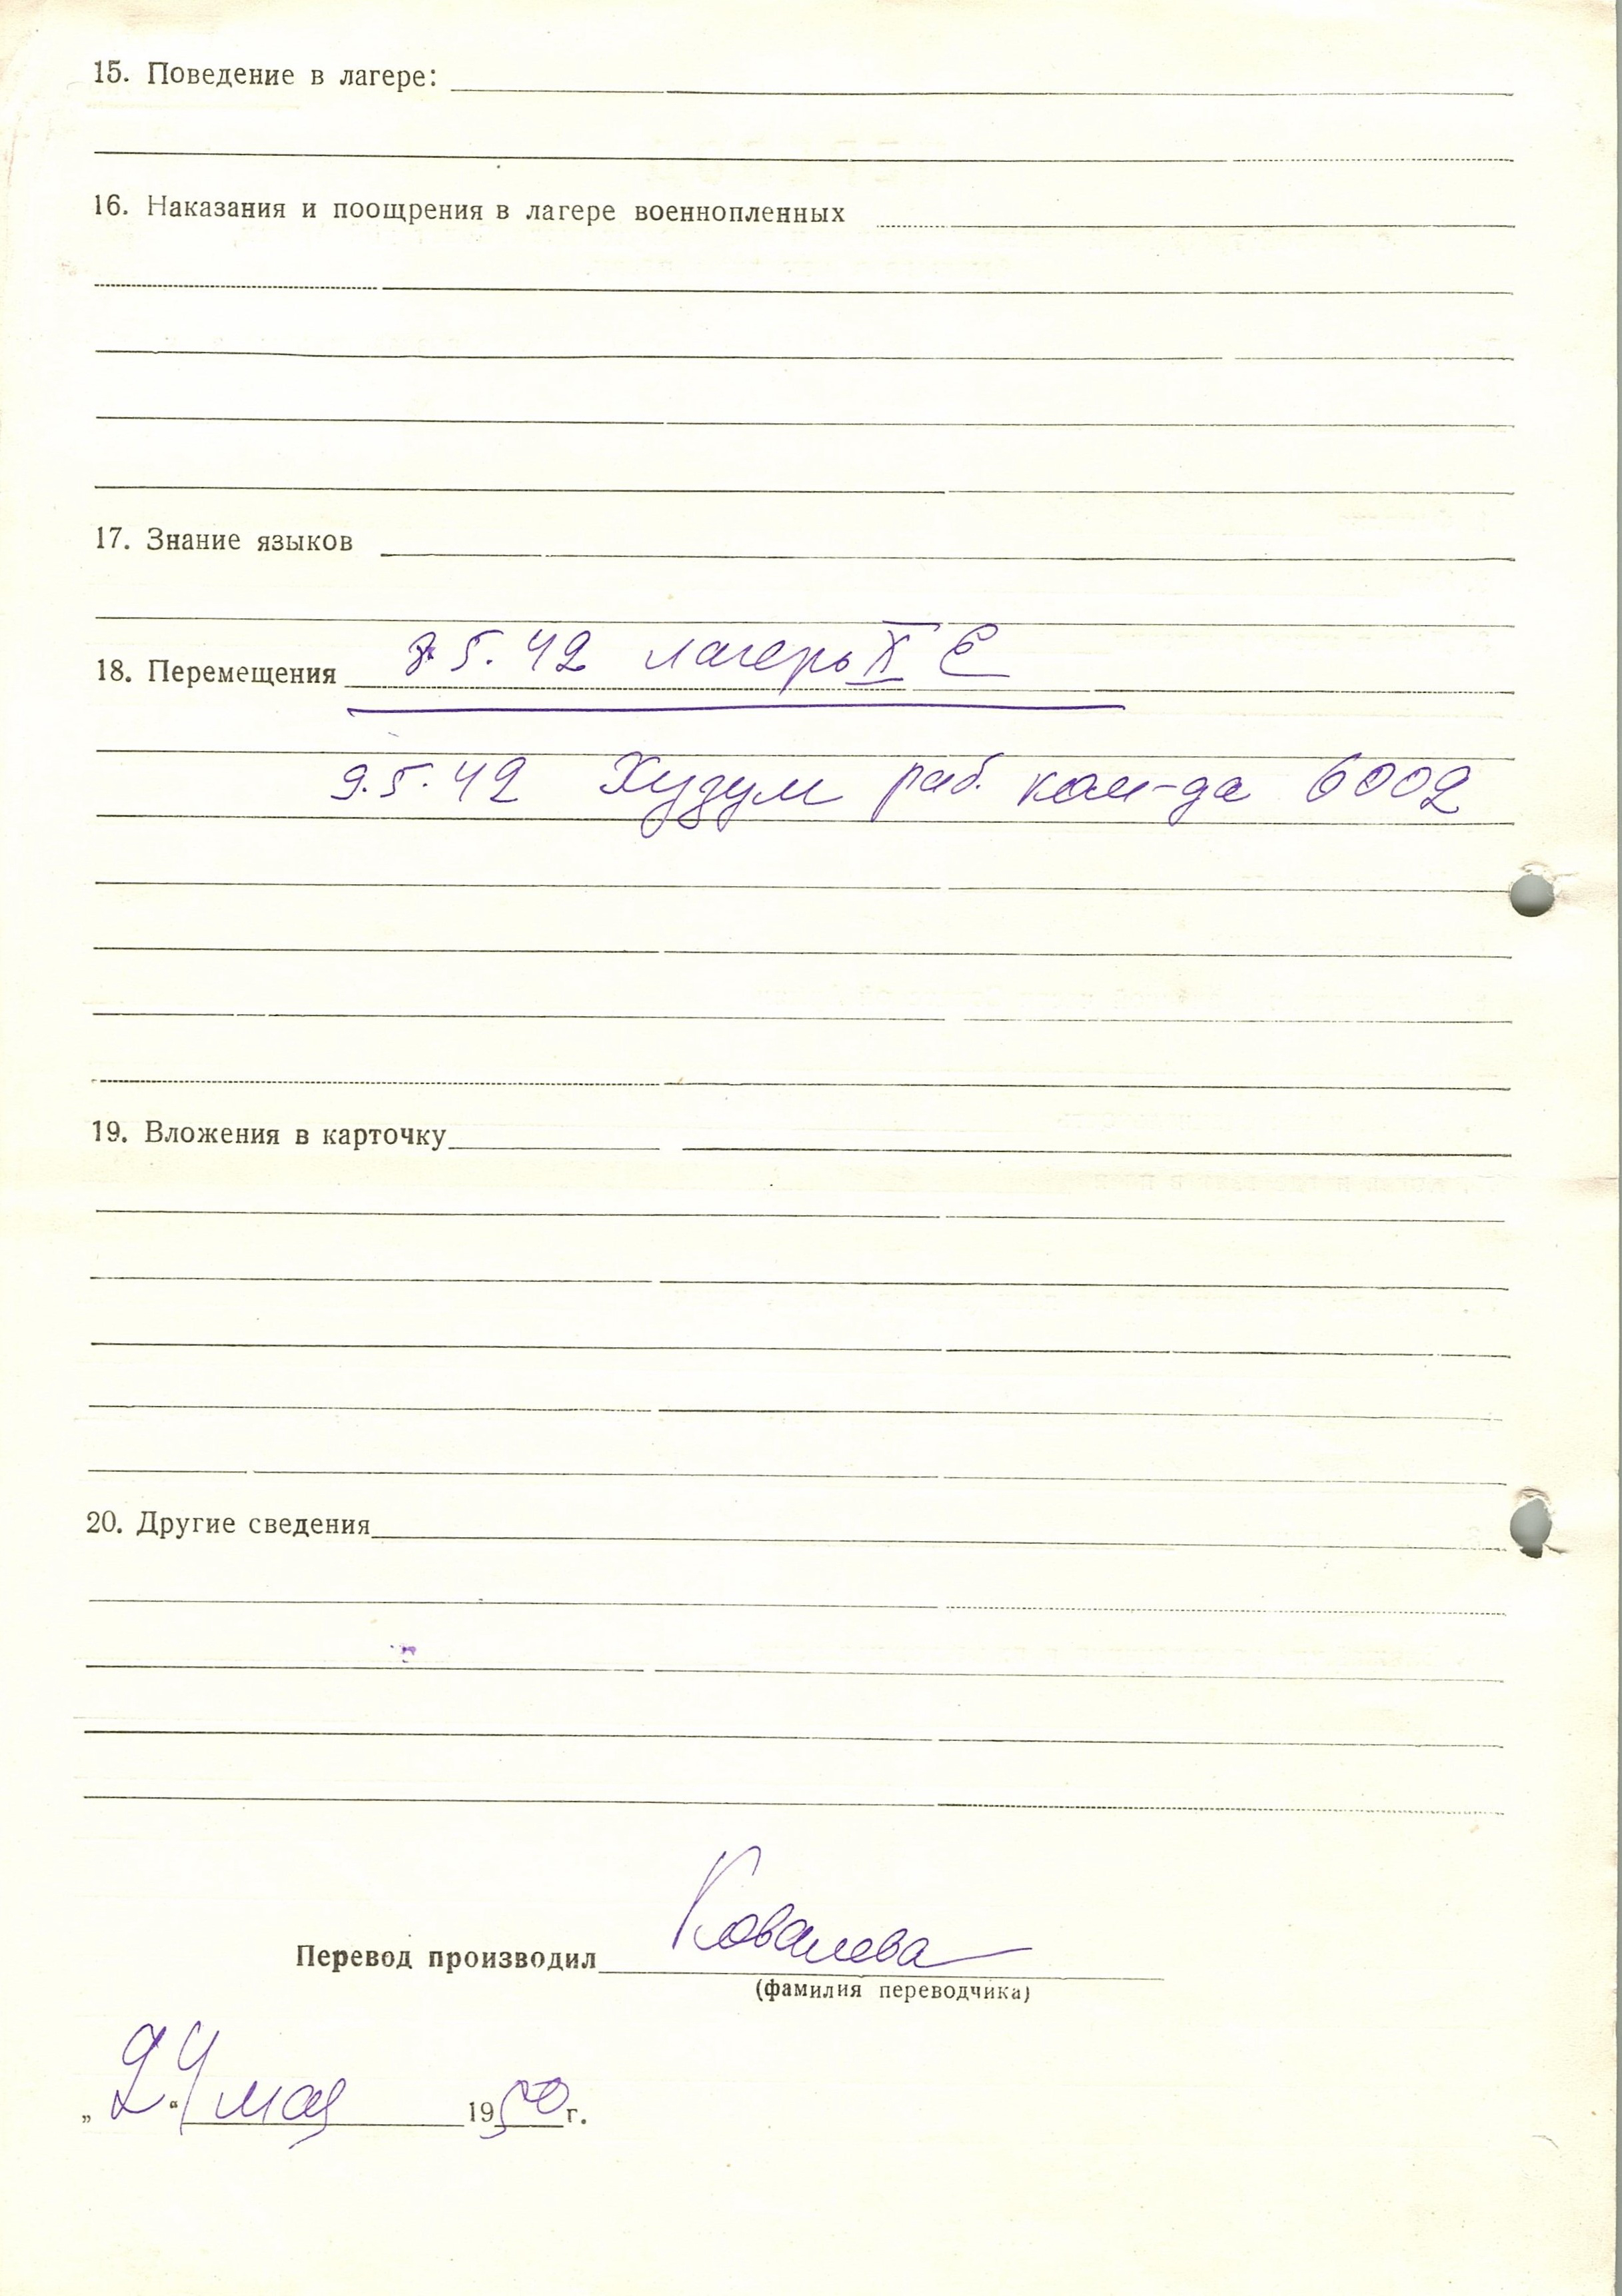 15. Поведение в лагере:
16. Наказания и поощрения в лагере военнопленных
17. Знание языков
18. Перемещения 5.42 лагерь X C
9.5.42 Хузум раб. ком-да 6002
19. Вложения в карточку
20. Другие сведения
Перевод производил Ковалева
(фамилия переводчика)
„24“ мая 1950 г.